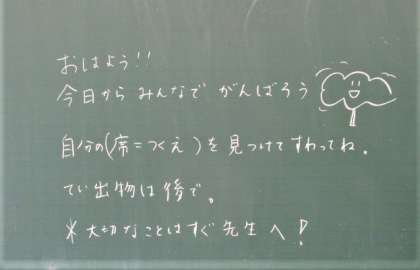 おはよう!!
今日から みんなで がんばろう
自分の(席=つくえ)を見つけてすわってね。
てい出物は後で。
*大切なことはすぐ先生へ!